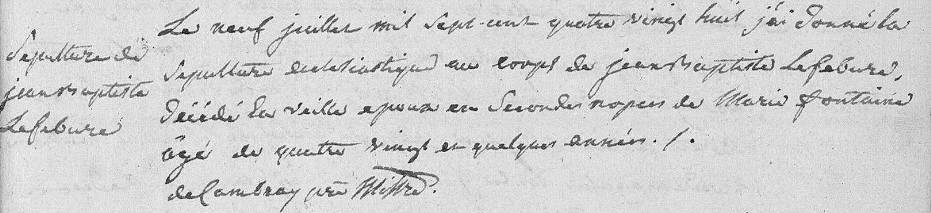 Sepulture de
jean Baptiste
Lefebure
Le neuf juillet mil Sept-cent quatre vingt huit j'ai donné la
Sepulture ecclesiastique au corps de jean Baptiste Lefebure,
décédé la veille epoux en Secondes nopces de Marie fontaine
âgé de quatre vingt et quelques années. /.
de Cambray p̄r̄e